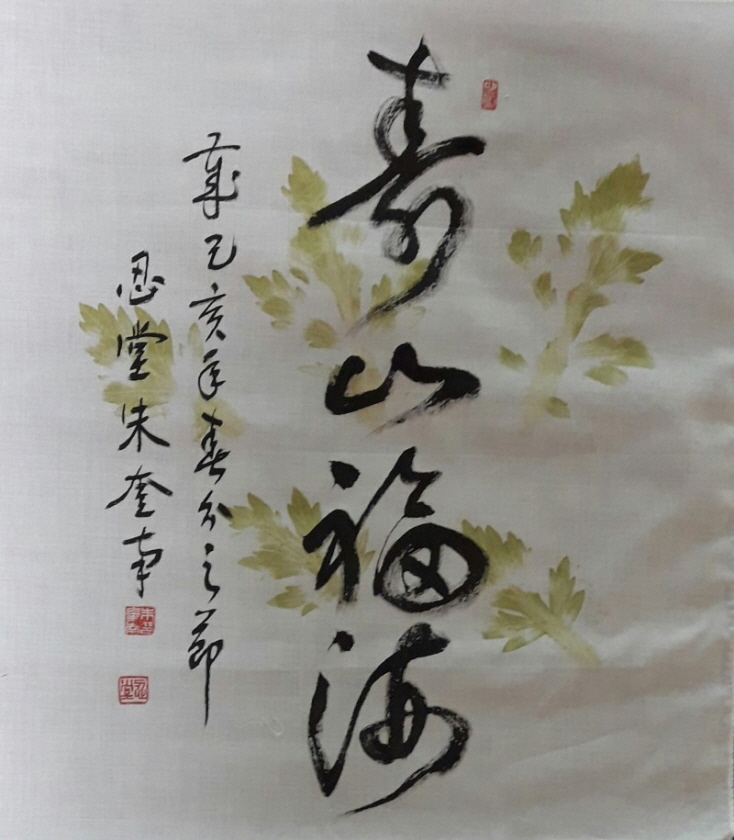 壽山福海
歲己亥年春分之節
忍堂朱奎南